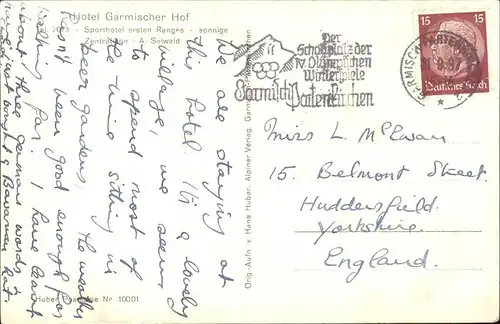 Hotel Garmischer Hof
Tel. - Sporthotel ersten Ranges - sonnige
Zentrallage - A. Seiwald
We are staying at
this hotel. It's a lovely
village, we seem
to spend most of
the time sitting in
beer gardens,
the weather
hasn't been good enough for
bathing so far. I have learnt
about three German words &
and I've just bought a Bavarian hat.
Huber Postkarte Nr 10001
Orig.-Aufn. v. Hans Huber, Alpiner Verlag, Garmisch-Partenkirchen
Der
Schauplatz der
IV. Olympischen
Winterspiele
Garmisch
Partenkirchen
GARMISCH-PARTENKIRCHEN
15 15
Deutsches Reich
Miss L McEwan
15. Belmont Street.
Huddersfield.
Yorkshire.
England.